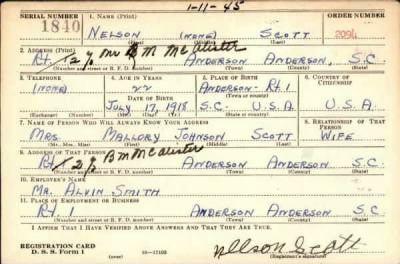 1-11-45
SERIAL NUMBER 1. NAME (Print) ORDER NUMBER
1840 NELSON (NONE) SCOTT 2094
(First) (Middle) (Last)
2. ADDRESS (Print)
Rt. 2 % Mr B M McAlister ANDERSON ANDERSON S.C.
(Number and street or R. F. D. number) (Town) (County) (State)
3. TELEPHONE 4. AGE IN YEARS 5. PLACE OF BIRTH 6. COUNTRY OF CITIZENSHIP
(NONE) 22 ANDERSON - Rt. 1
DATE OF BIRTH
JULY 17, 1918 S.C. U.S.A. U.S.A.
(Exchange) (Number) (Mo.) (Day) (Yr.) (State or country)
7. NAME OF PERSON WHO WILL ALWAYS KNOW YOUR ADDRESS 8. RELATIONSHIP OF THAT PERSON
MRS. MALLORY JOHNSON SCOTT WIFE
(Mr., Mrs., Miss) (First) (Middle) (Last)
9. ADDRESS OF THAT PERSON
Rt. 2 % B M McAlister ANDERSON ANDERSON S.C.
(Number and street or R. F. D. number) (Town) (County) (State)
10. EMPLOYER'S NAME
MR. ALVIN SMITH
11. PLACE OF EMPLOYMENT OR BUSINESS
Rt. 1 ANDERSON ANDERSON S.C.
(Number and street or R. F. D. number) (Town) (County) (State)
I AFFIRM THAT I HAVE VERIFIED ABOVE ANSWERS AND THAT THEY ARE TRUE.
REGISTRATION CARD
D. S. S. Form 1 (over) 16-17105 Nelson Scott
(Registrant's signature)